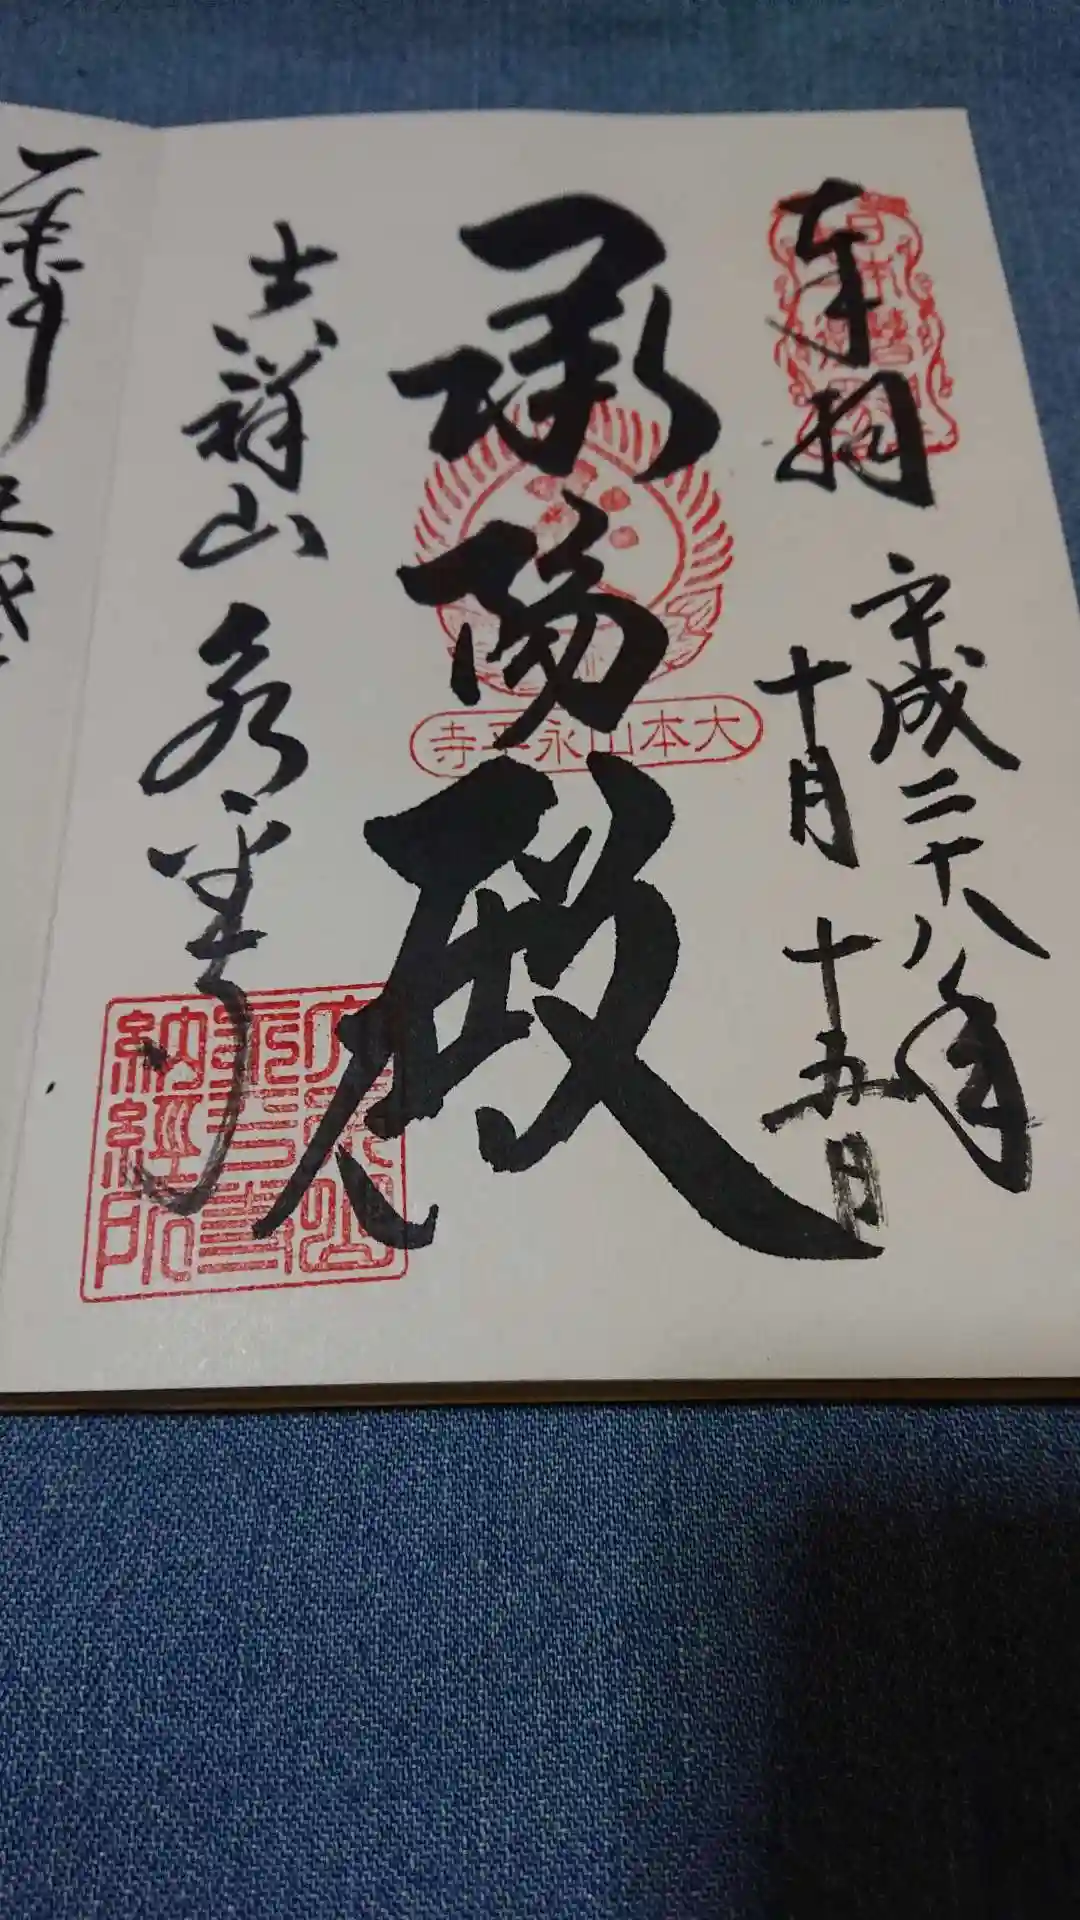 奉拝
平成二十八年
十月十五日
承陽殿
大本山永平寺
吉祥山永平寺
大本山
永平寺
納経所